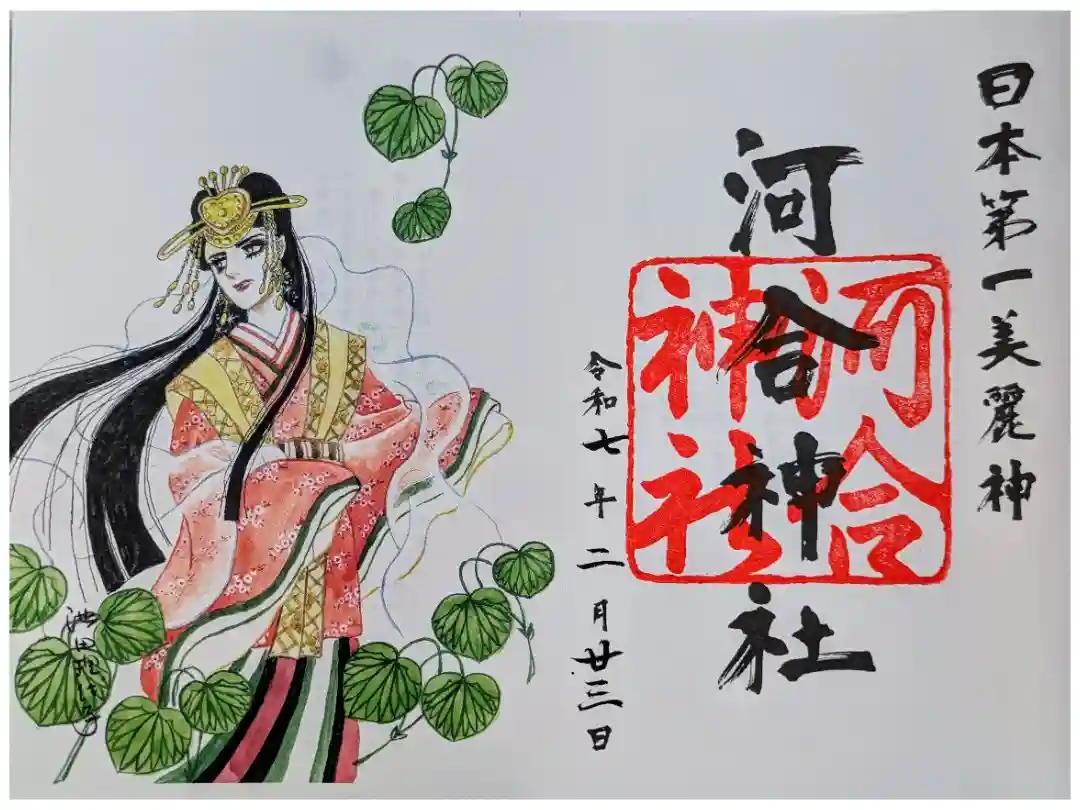 日本第一美麗神
河合神社
河合
神社
令和七年二月廿三日
池田理代子